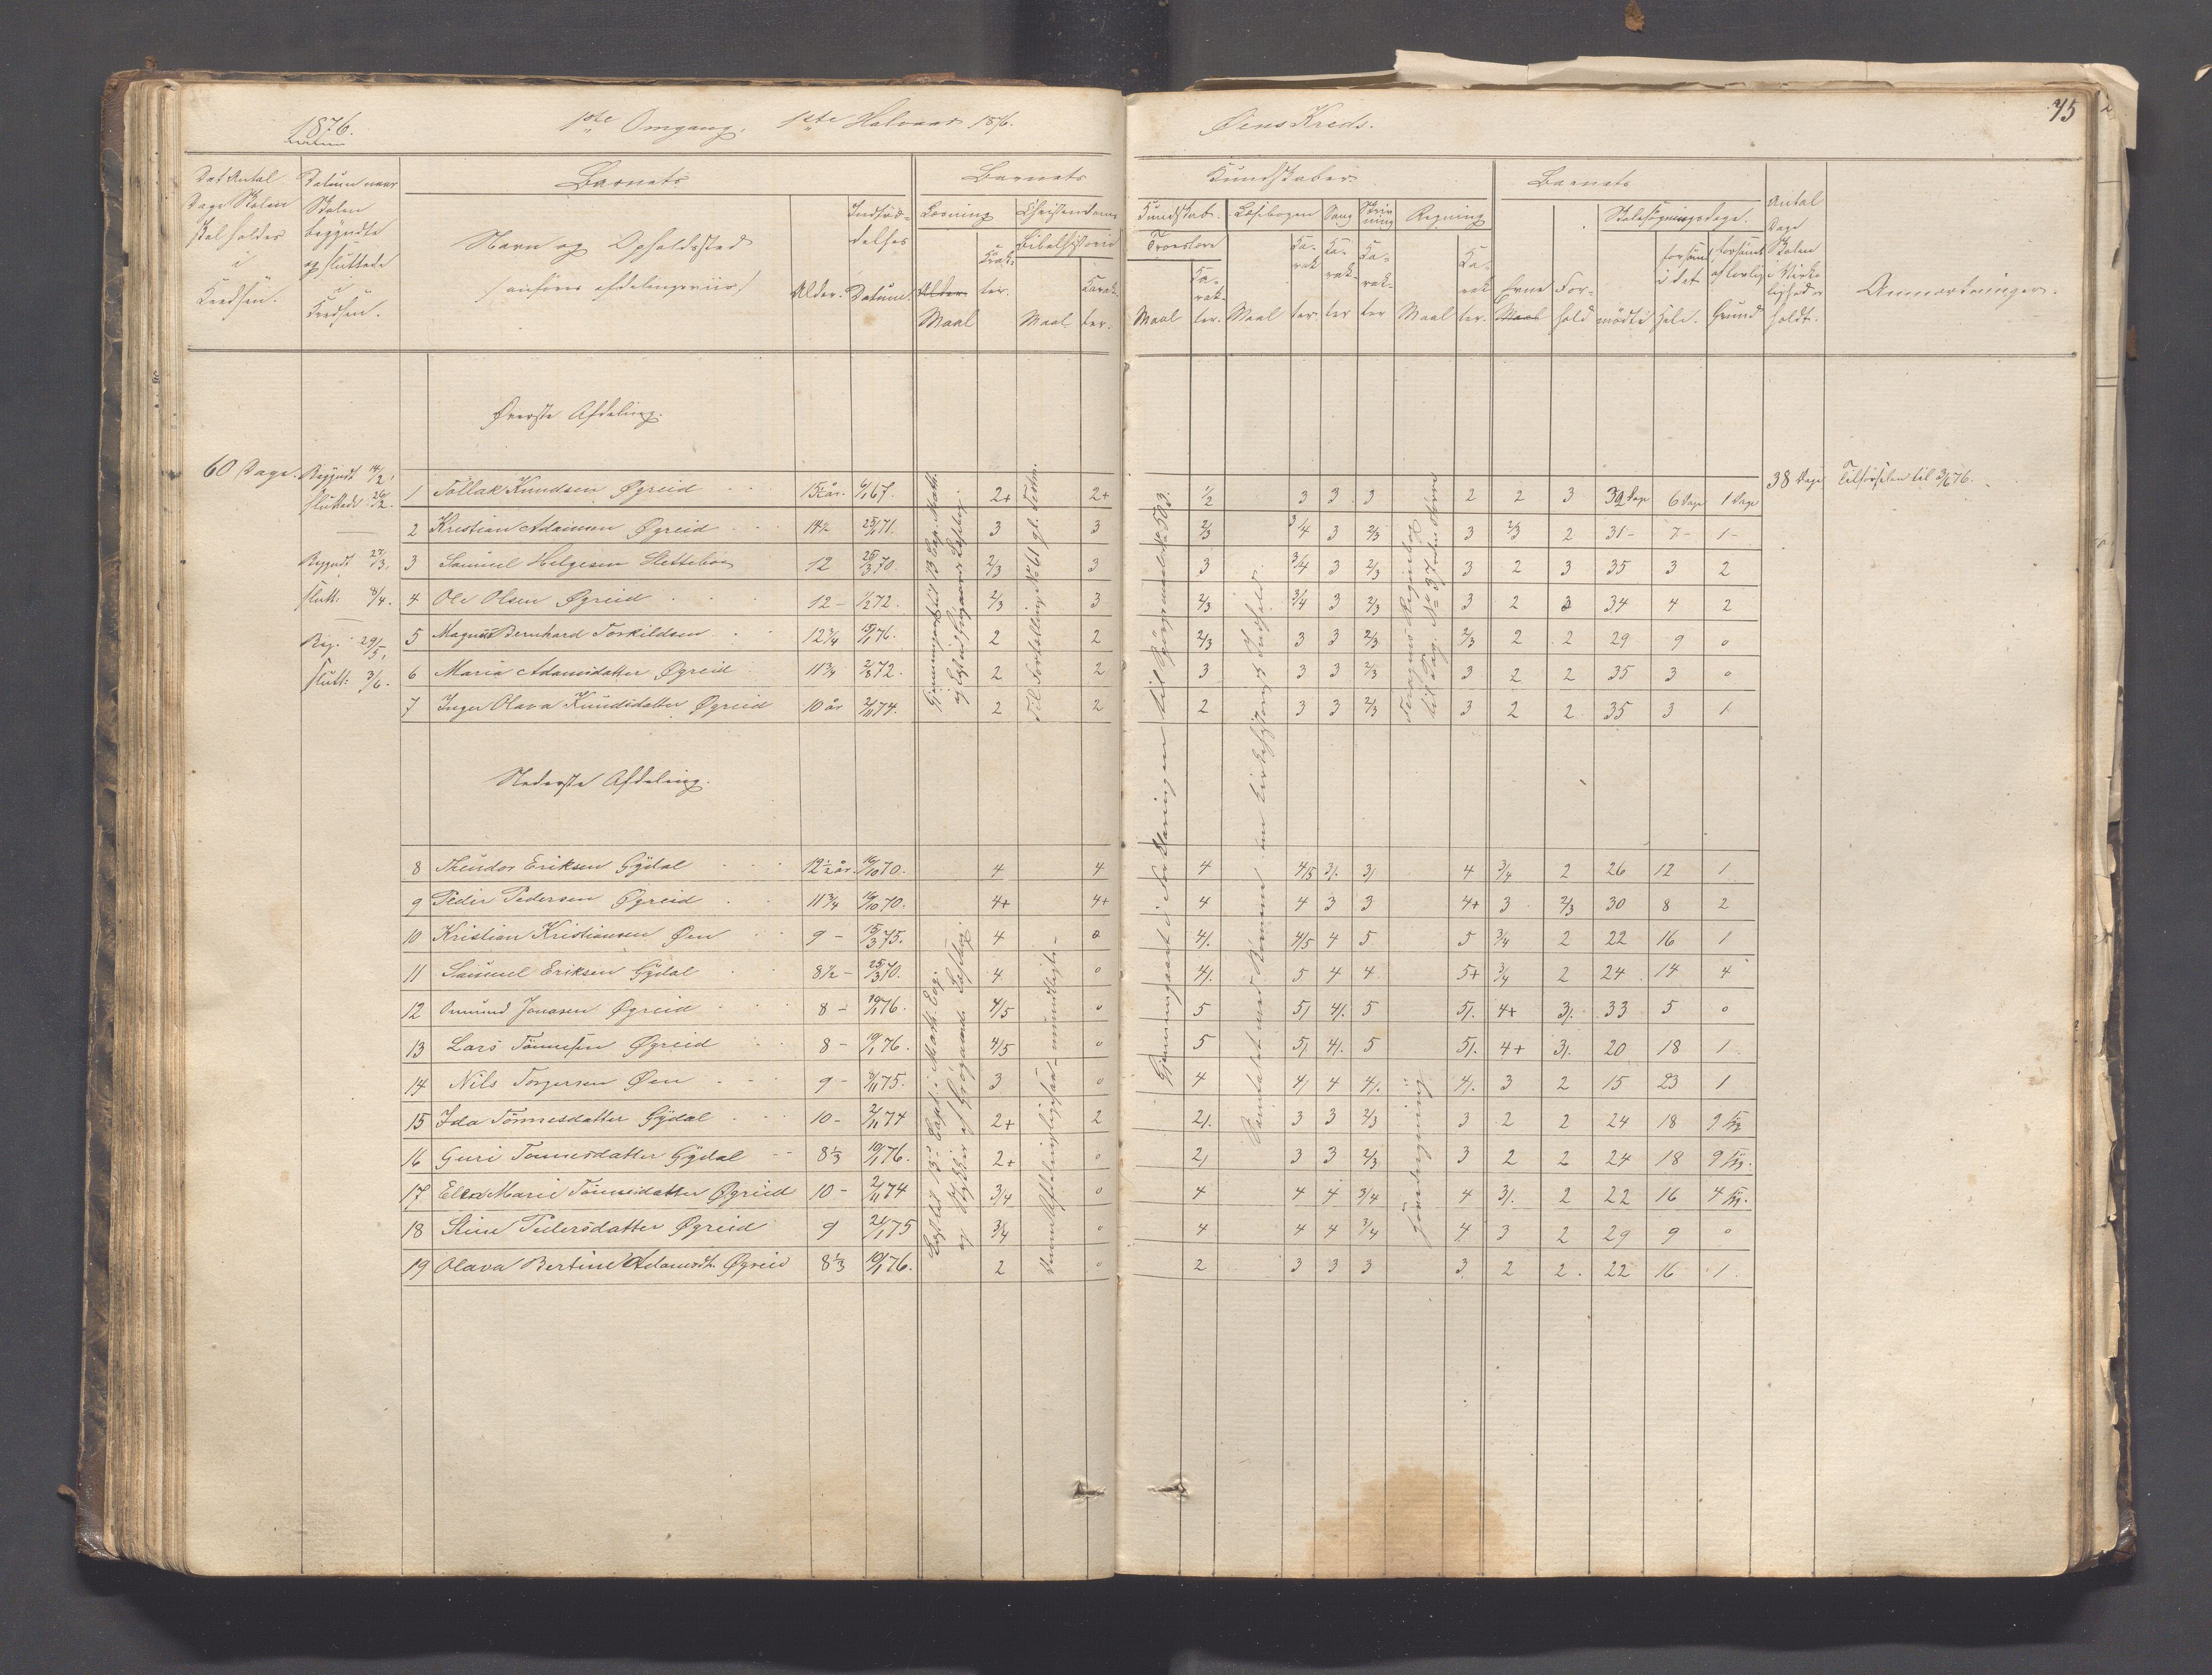 1876.
1ste Omgang. 1ste Halvaar 1876.
Øens Kreds.
75
Det Antal Dage Skolen skal holdes i Kredsen.
Datum naar Skolen begyndte og sluttede i Kredsen.
Barnets
Navn og Opholdssted
(anføres afdelingsviis)
Alder.
Indtrædelses Datum.
Barnets
Kundskaber.
Læsning
Maal
Karakter.
Christendoms
Kundskab.
Bibelhistorie
Maal
Karakter.
Troeslære
Maal
Karakter.
Læsebogen
Maal
Karakter.
Sang
Karakter
Skrivning
Karakter
Regning
Maal
Karakter.
Barnets
Evne
Forhold
Skolesøgningsdage.
mødte
forsømt i det Hele.
forsømt af lovlig Grund
Antal Dage Skolen i Virkeligheden holdt.
Anmærkninger.
Øverste Afdeling.
60 Dage.
Begyndt 14/2,
sluttede 26/2.
Begyndt 27/3,
slutt: 8/4.
Beg. 29/5,
slutt: 3/6.
38 Dage
Tilførselen til 3/6 76.
1 Tollak Knudsen Øgreid 15 1/2 år. 6/1 67. 2+ 2+ 1/2 3 3 3 2 2 3 32 Dage 6 Dage 1 Dage
2 Kristian Adamsen Øgreid 14 1/2 25/1 71. 3 3 2/3 3/4 3 2/3 3 2/3 2 31 - 7 - 1 -
3 Samuel Helgesen Slettebø 12 25/3 70. 2/3 3 3 3/4 3 2/3 3 2 3 35 3 2
4 Ole Olsen Øgreid 12 - 1/2 72. 2/3 3 2/3 3/4 3 2/3 3 2 3 34 4 2
5 Magnus Bernhard Torkildsen 12 3/4 15/1 76. 2 2 2/3 3 3 2/3 2/3 2 2 29 9 0
6 Maria Adamsdatter Øgreid 11 3/4 2/8 72. 2 2 3 3 3 2/3 3 2 2 35 3 0
7 Inger Olava Knudsdatter Øgreid 10 år 2/11 74. 2 2 2 3 3 2/3 3 2 2 35 3 1
Nederste Afdeling.
8 Theodor Eriksen Gydal 12 1/2 år 16/10 70. 4 4 4 4/5 3/. 3/ 4 3/4 2 26 12 1
9 Peder Pedersen Øgreid 11 3/4 16/10 70. 4+ 4+ 4 4 3 3 4+ 3 2/3 30 8 2
10 Kristian Kristiansen Øen 9 - 15/3 75. 4 0 4/. 4/5 4 5 5 3/4 2 22 16 1
11 Samuel Eriksen Gydal 8 1/2 - 25/3 70. 4 0 4/. 5 4 4 5+ 3/4 2 24 14 4
12 Omund Jonasen Øgreid 8 - 19/1 76. 4/5 0 5 5/ 4/. 5 5/. 4+ 3/. 33 5 0
13 Lars Tönnesen Øgreid 8 - 19/1 76. 4/5 0 5 5/. 4/. 5 5/. 4+ 3/. 20 18 1
14 Nils Torgersen Øen 9 - 3/11 75. 3 0 4 4/ 4 4/. 4/. 3 2 15 23 1
15 Ida Tönnesdatter Gydal 10 - 2/11 74 2+ 2 2/. 3 3 2/3 3 2 2 24 18 9
16 Guri Tönnesdatter Gydal 8 1/3 19/1 76. 2+ 0 2/ 3 3 2/3 3 2 2 24 18 9
17 Elen Marie Tönnesdatter Øgreid 10 - 2/11 74 3/4 0 4 4 4 3/4 4 3/. 2 22 16 4
18 Stine Pedersdatter Øgreid 9 21/1 75 3/4 0 4 4 4 3/4 4 3 2 29 9 0
19 Olava Bertine Adamsdt. Øgreid 8 1/3 19/1 76. 2 0 2 3 3 3 3 2 2 22 16 1